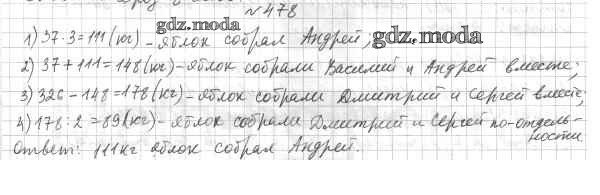 №478
gdz.moda
1) 37·3=111(кг)-яблок собрал Андрей; gdz.moda
2) 37+111=148(кг)-яблок собрали Василий и Андрей вместе;
3) 326-148=178(кг)-яблок собрали Дмитрий и Сергей вместе;
4) 178:2=89(кг)-яблок собрали Дмитрий и Сергей по-отдель-
ности
Ответ: 111кг яблок собрал Андрей.